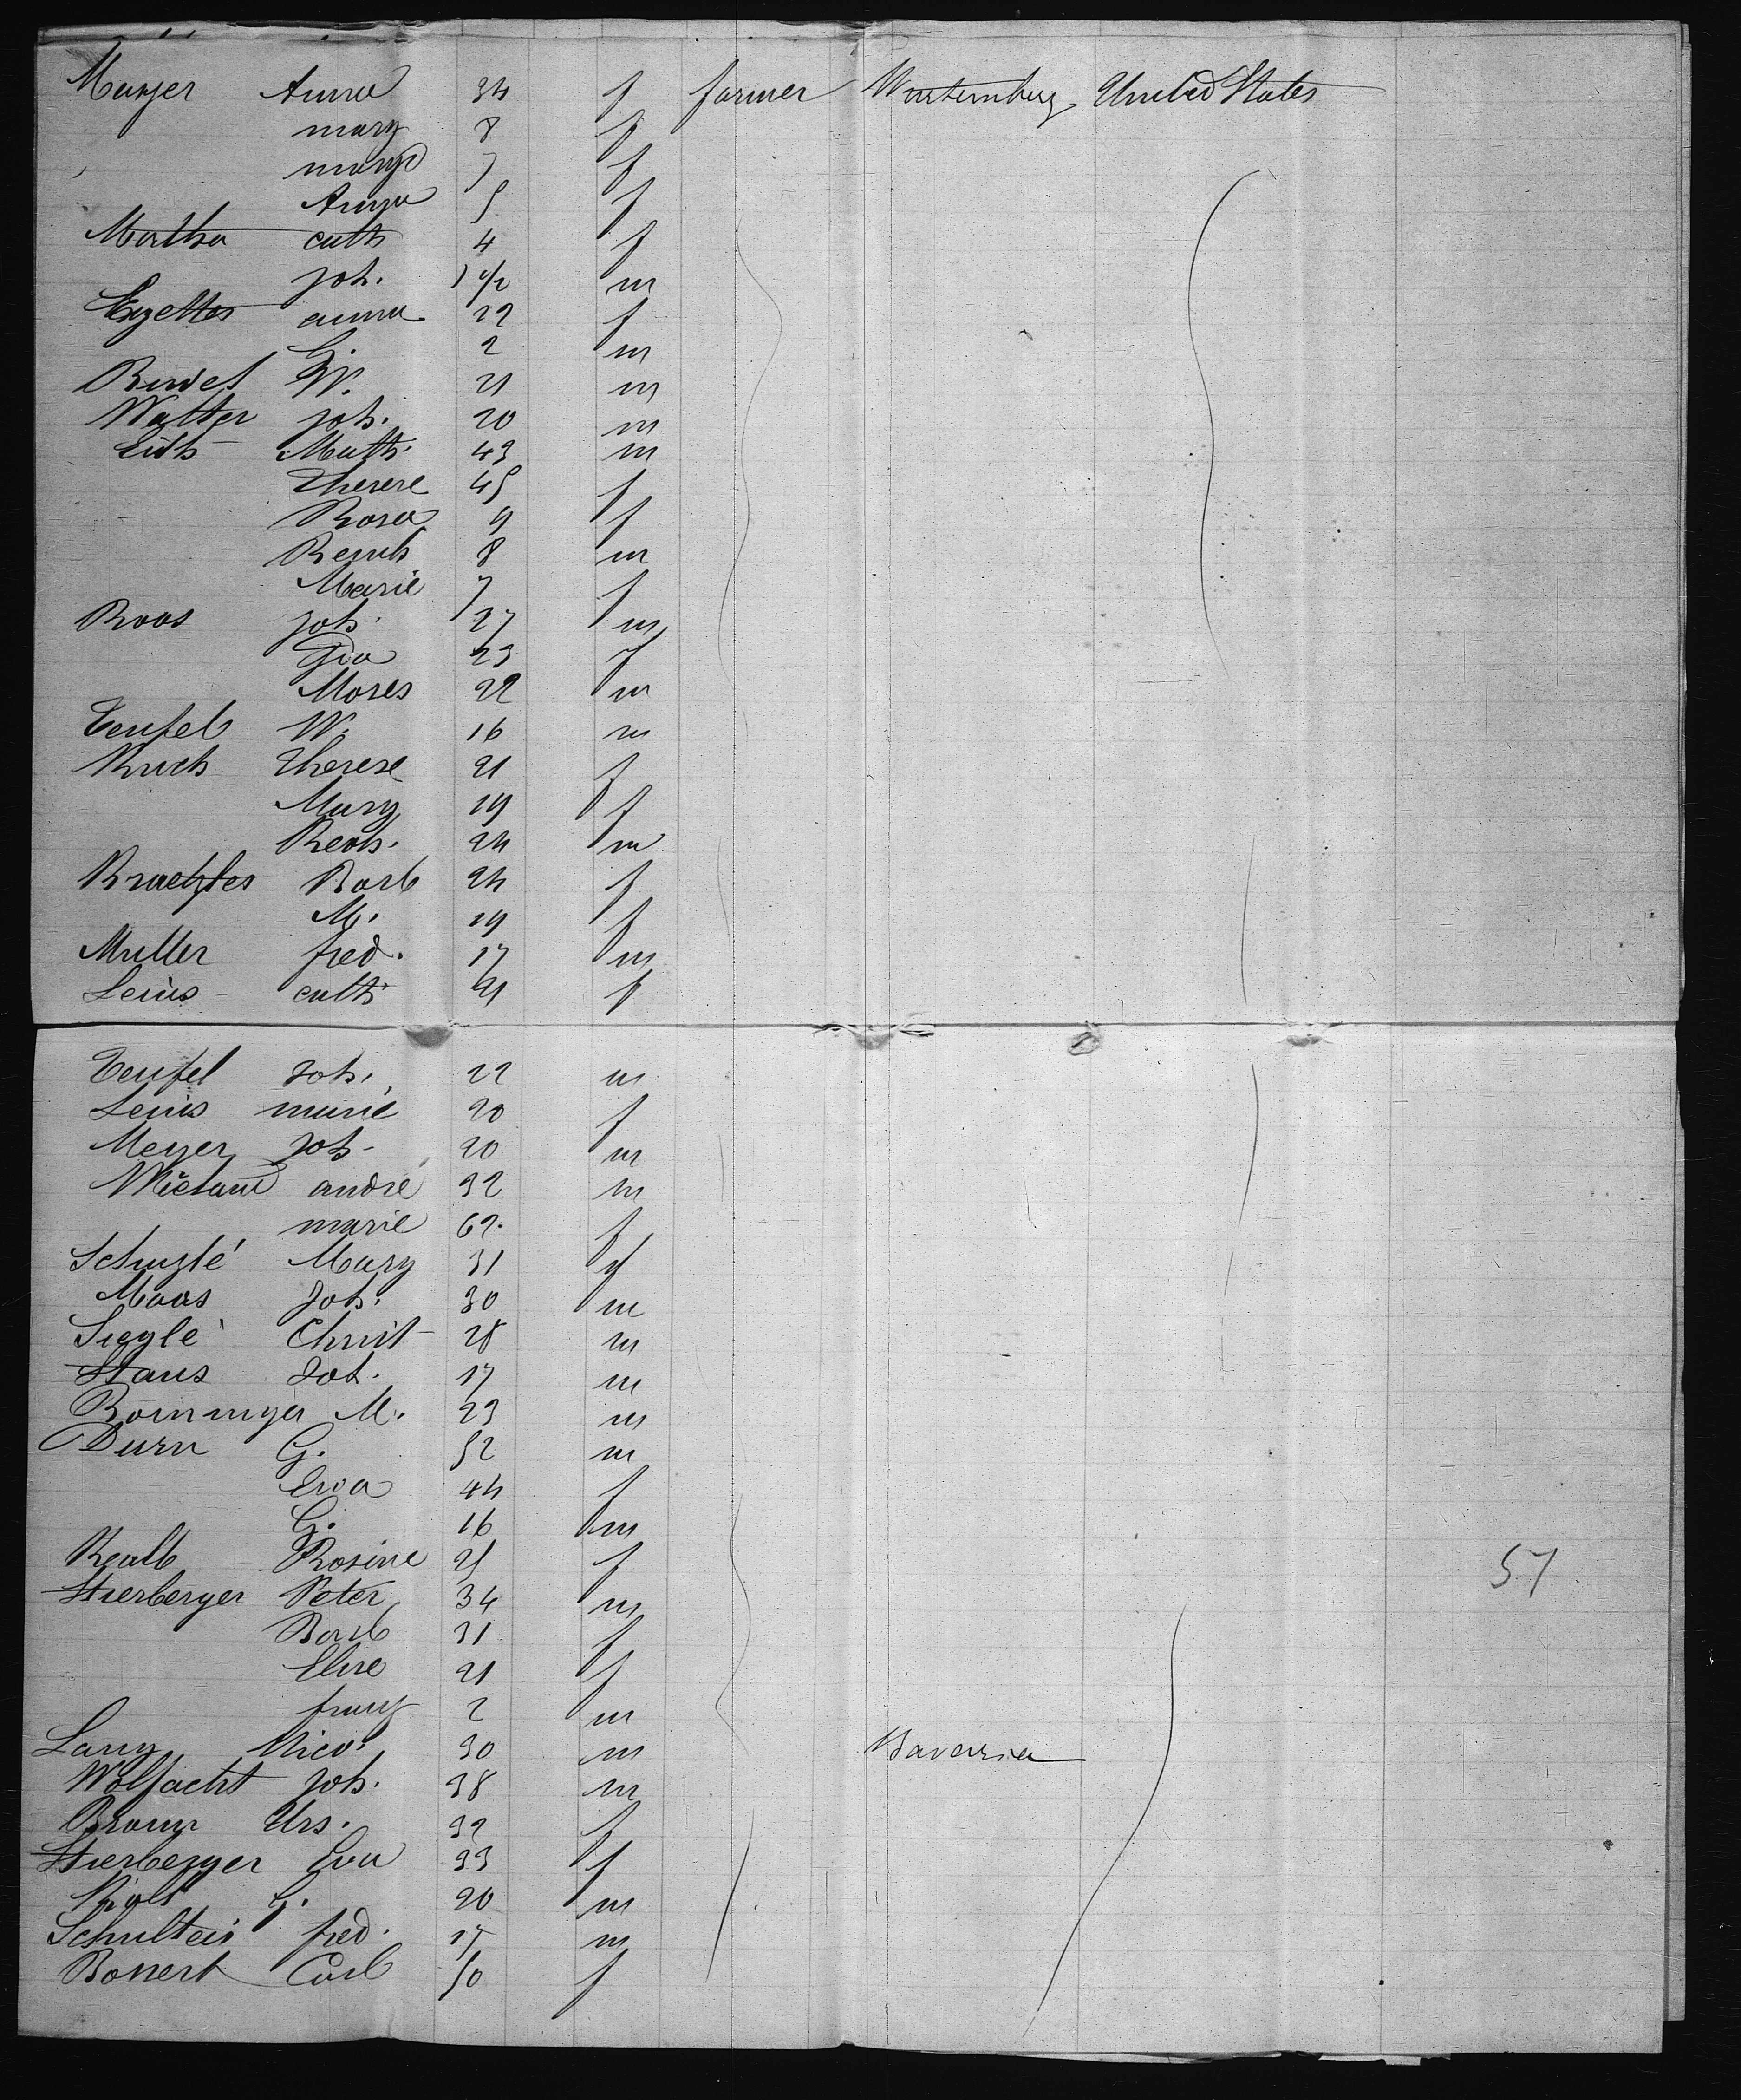 Mayer Anna 34 f farmer Wurtemburg United States
mary 8 f
marga 7 f
Anna 5 f
Martha cath 4 f
joh. 1 1/2 m
anna 22 f
G. 2 m
W. 21 m
Walter joh. 20 m
Math. 43 m
Therese 45 f
Rosa 9 f
8 m
Marie 7 f
Roos joh. 27 m
23 f
Moses 22 m
Teufel W. 16 m
Therese 21 f
Mary 19 f
24 m
Barb 24 f
M. 19 f
Muller fred. 17 m
Leins cath 21 f
Teufel Joh. 22 m
Leins marie 20 f
Meyer Joh. 20 m
andré 32 m
marie 62. f
Mary 31 f
Maas Joh. 30 m
Sieglé Christ 28 m
Staus Joh. 17 m
M. 23 m
Durn G. 52 m
Eva 44 f
G. 16 m
Kealb Rosine 25 f
Stierberger Peter 34 m
Barb 31 f
Elise 21 f
franz 2 m 57
Lang Nico. 30 m Bavaria
Wolfacht joh. 38 m
Urs. 32 f
Stierberger Eva 33 f
G. 20 m
Schulteis fred. 17 m
Bossert Carl 50 f